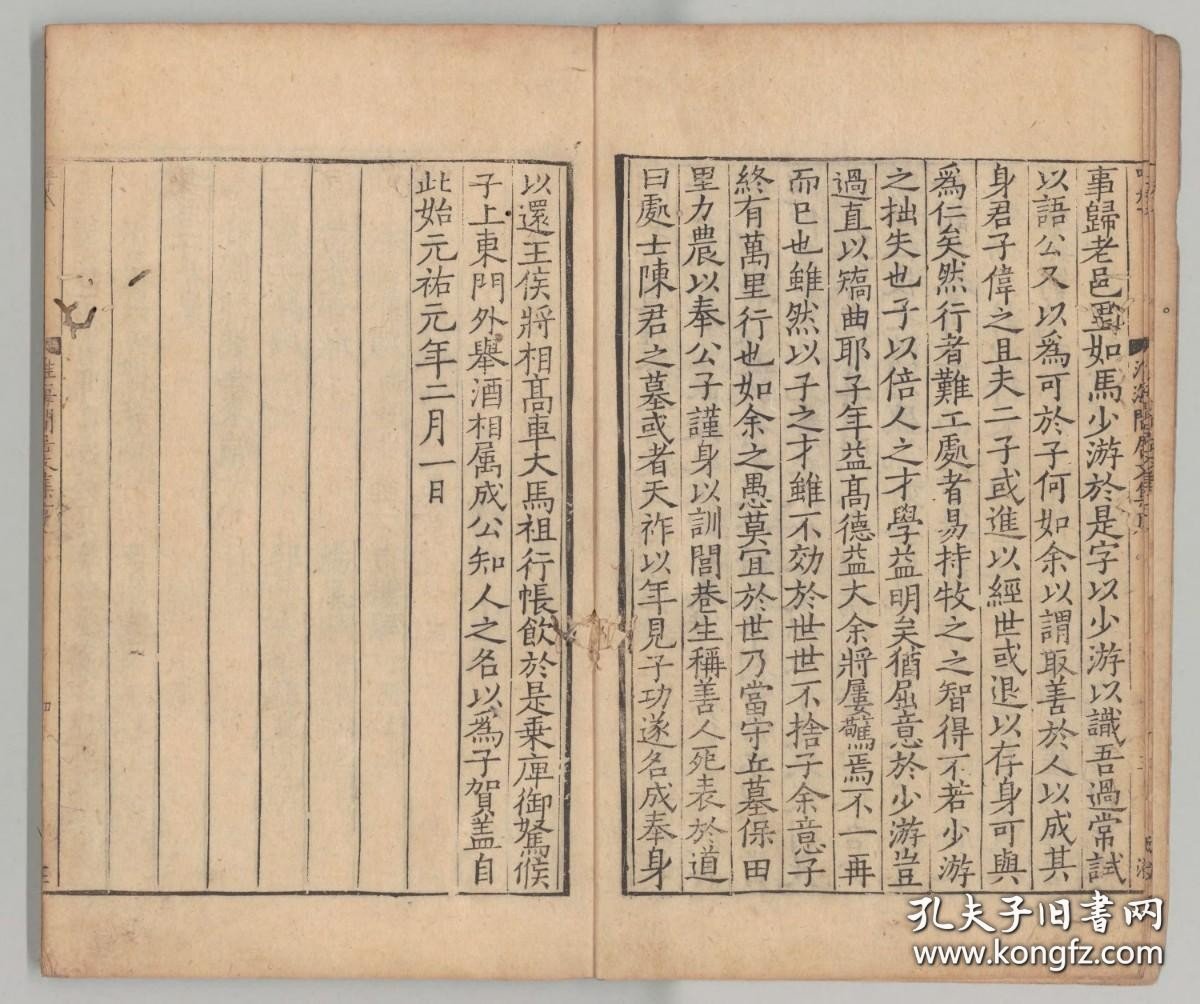 事歸老邑里如馬少游於是字以少游以識吾過常試
以語公又以爲可於子何如余以謂取善於人以成其
身君子偉之且夫二子或進以經世或退以存身可與
爲仁矣然行者難工處者易持牧之之智得不若少游
之拙失也子以倍人之才學益明矣猶屈意於少游豈
過直以矯曲耶子年益髙德益大余將屢驚焉不一再
而已也雖然以子之才雖不効於世世不捨子余意子
終有萬里行也如余之愚莫宜於世乃當守丘墓保田
里力農以奉公子謹身以訓閭巷生稱善人死表於道
曰處士陳君之墓或者天祚以年見子功遂名成奉身
以還王侯將相髙車大馬祖行帳飲於是乘庳御駑候
子上東門外舉酒相属成公知人之名以為子賀盖自
此始元祐元年二月一日
孔夫子旧书网
www.kongfz.com